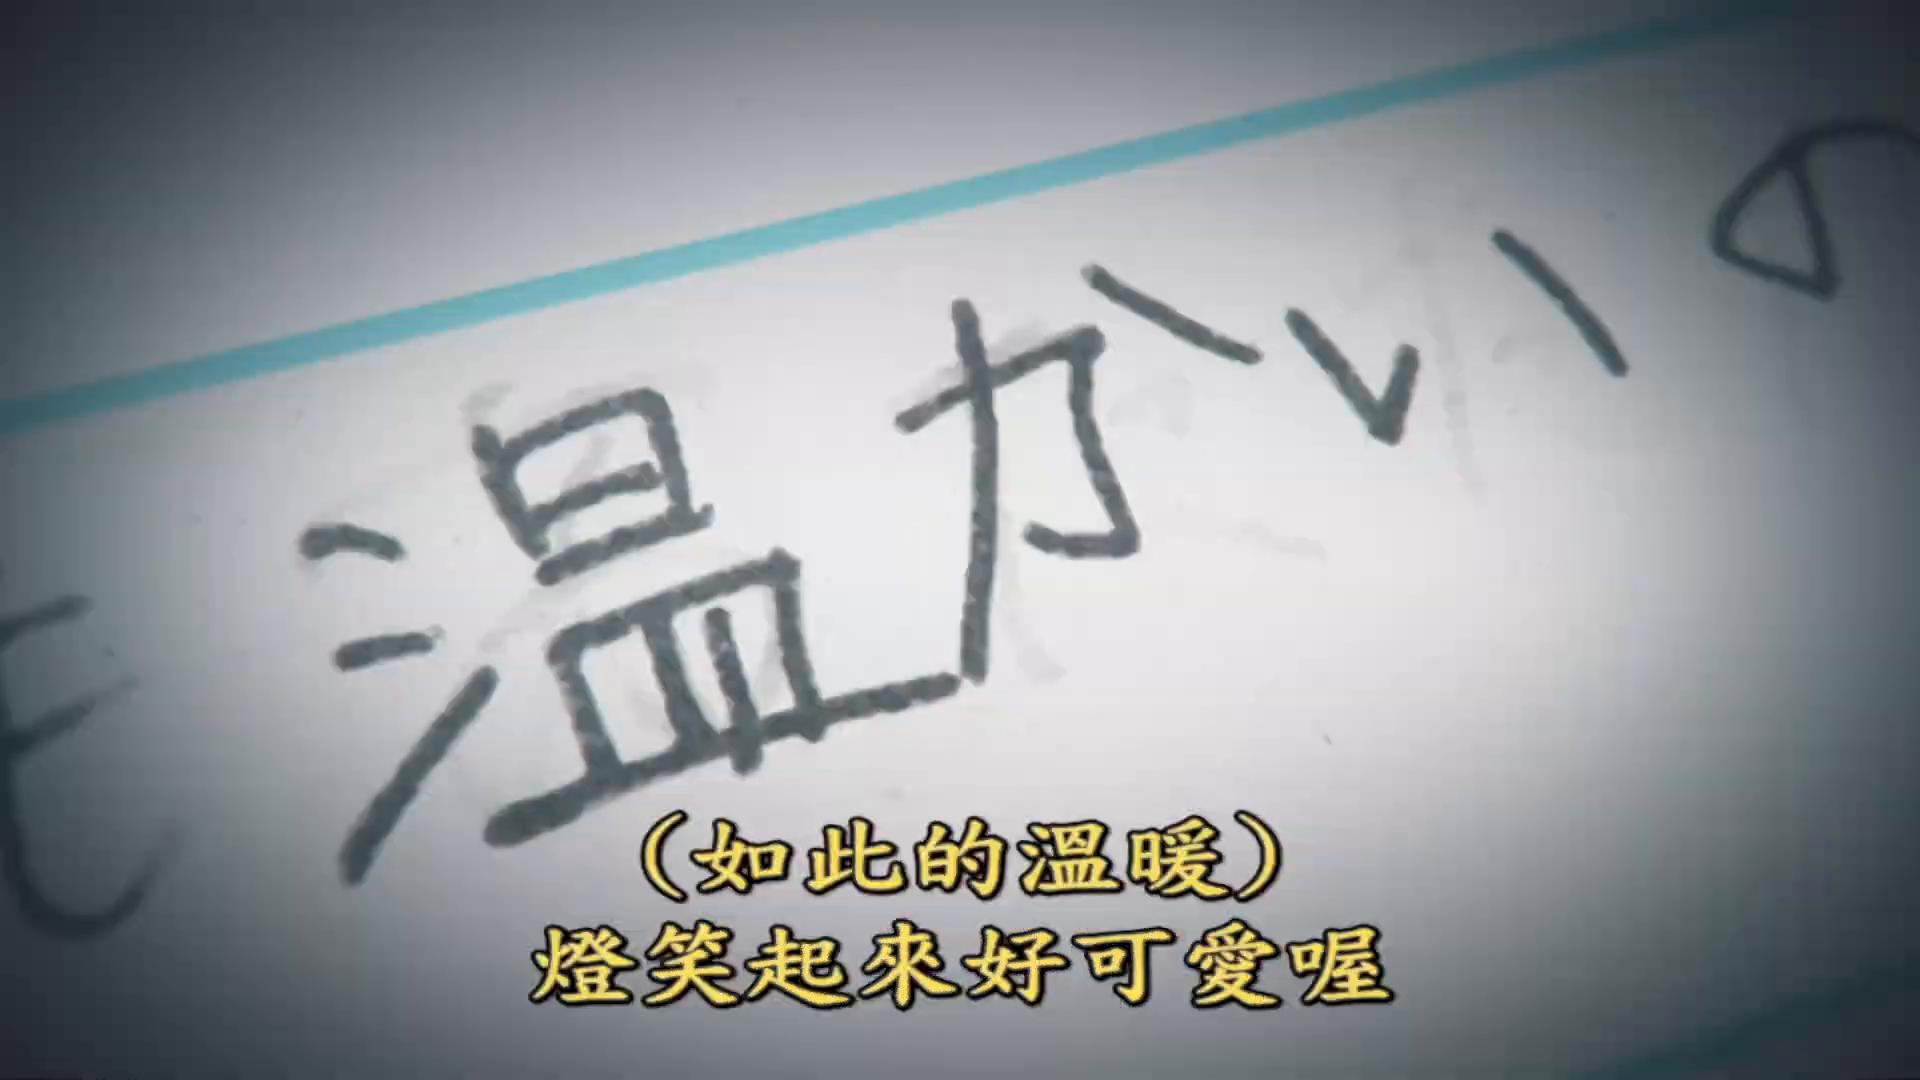 も温かいの
（如此的溫暖）
燈笑起來好可愛喔